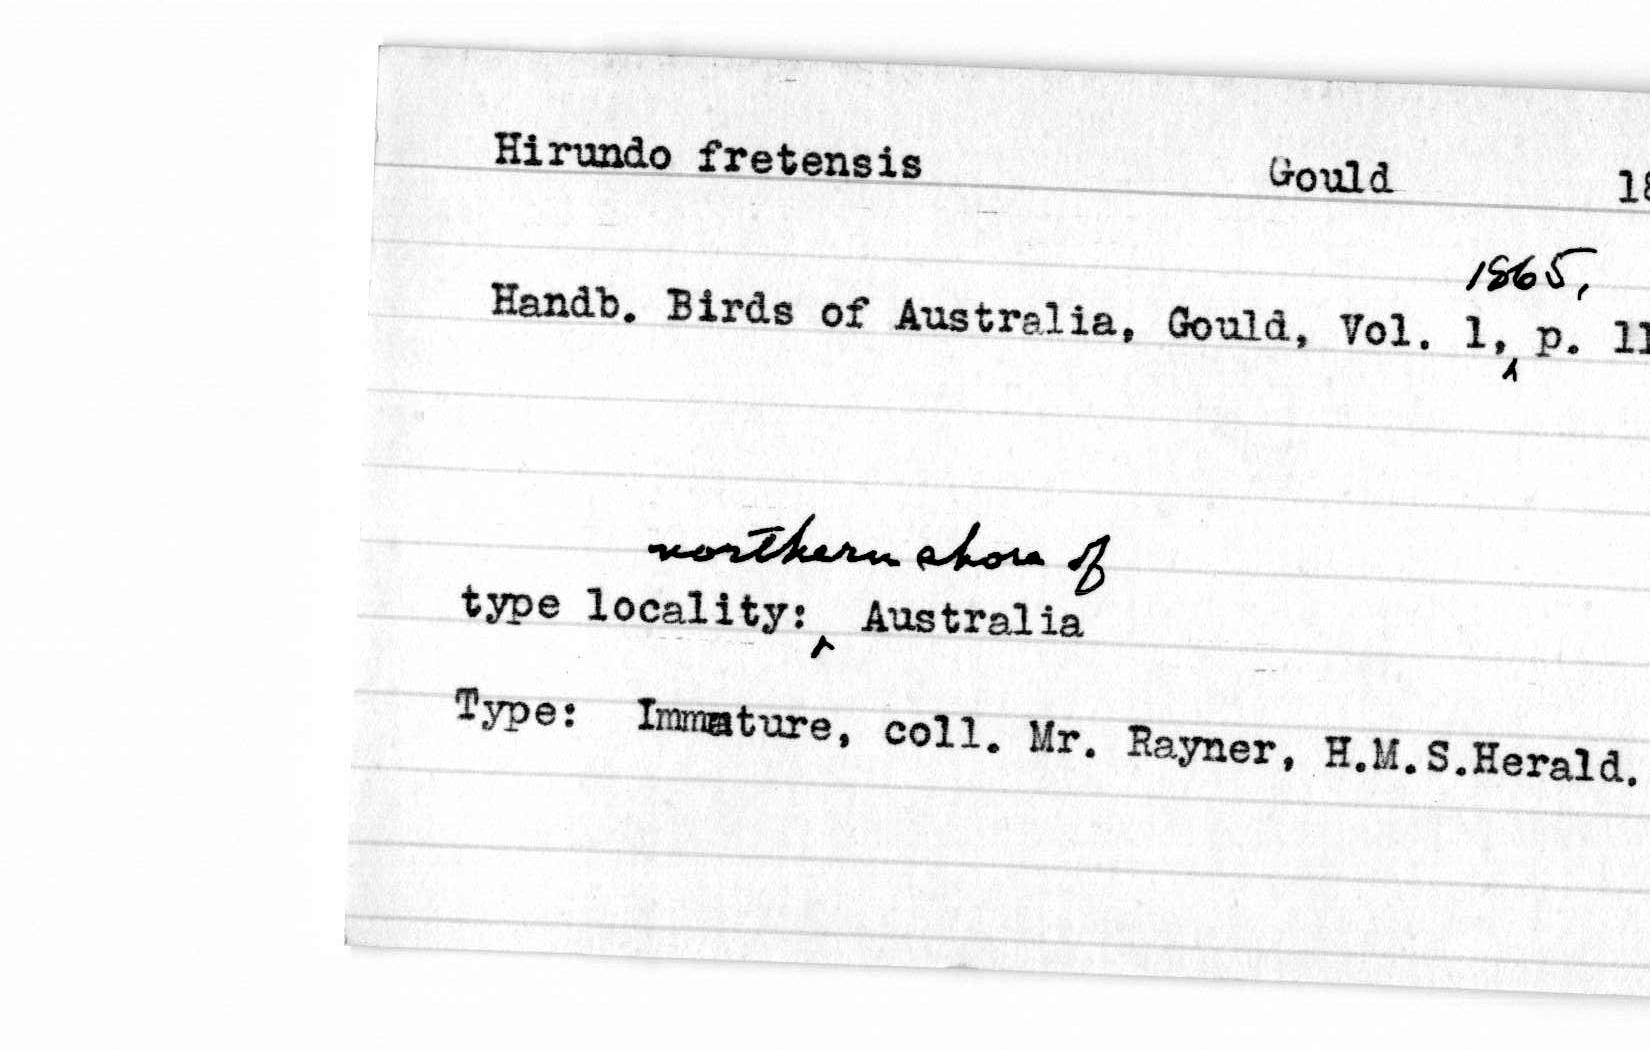 Hirundo fretensis Gould 18
1865,
Handb. Birds of Australia, Gould, Vol. 1, p. 11
northern shore of
type locality: Australia
Type: Immature, coll. Mr. Rayner, H.M.S.Herald.